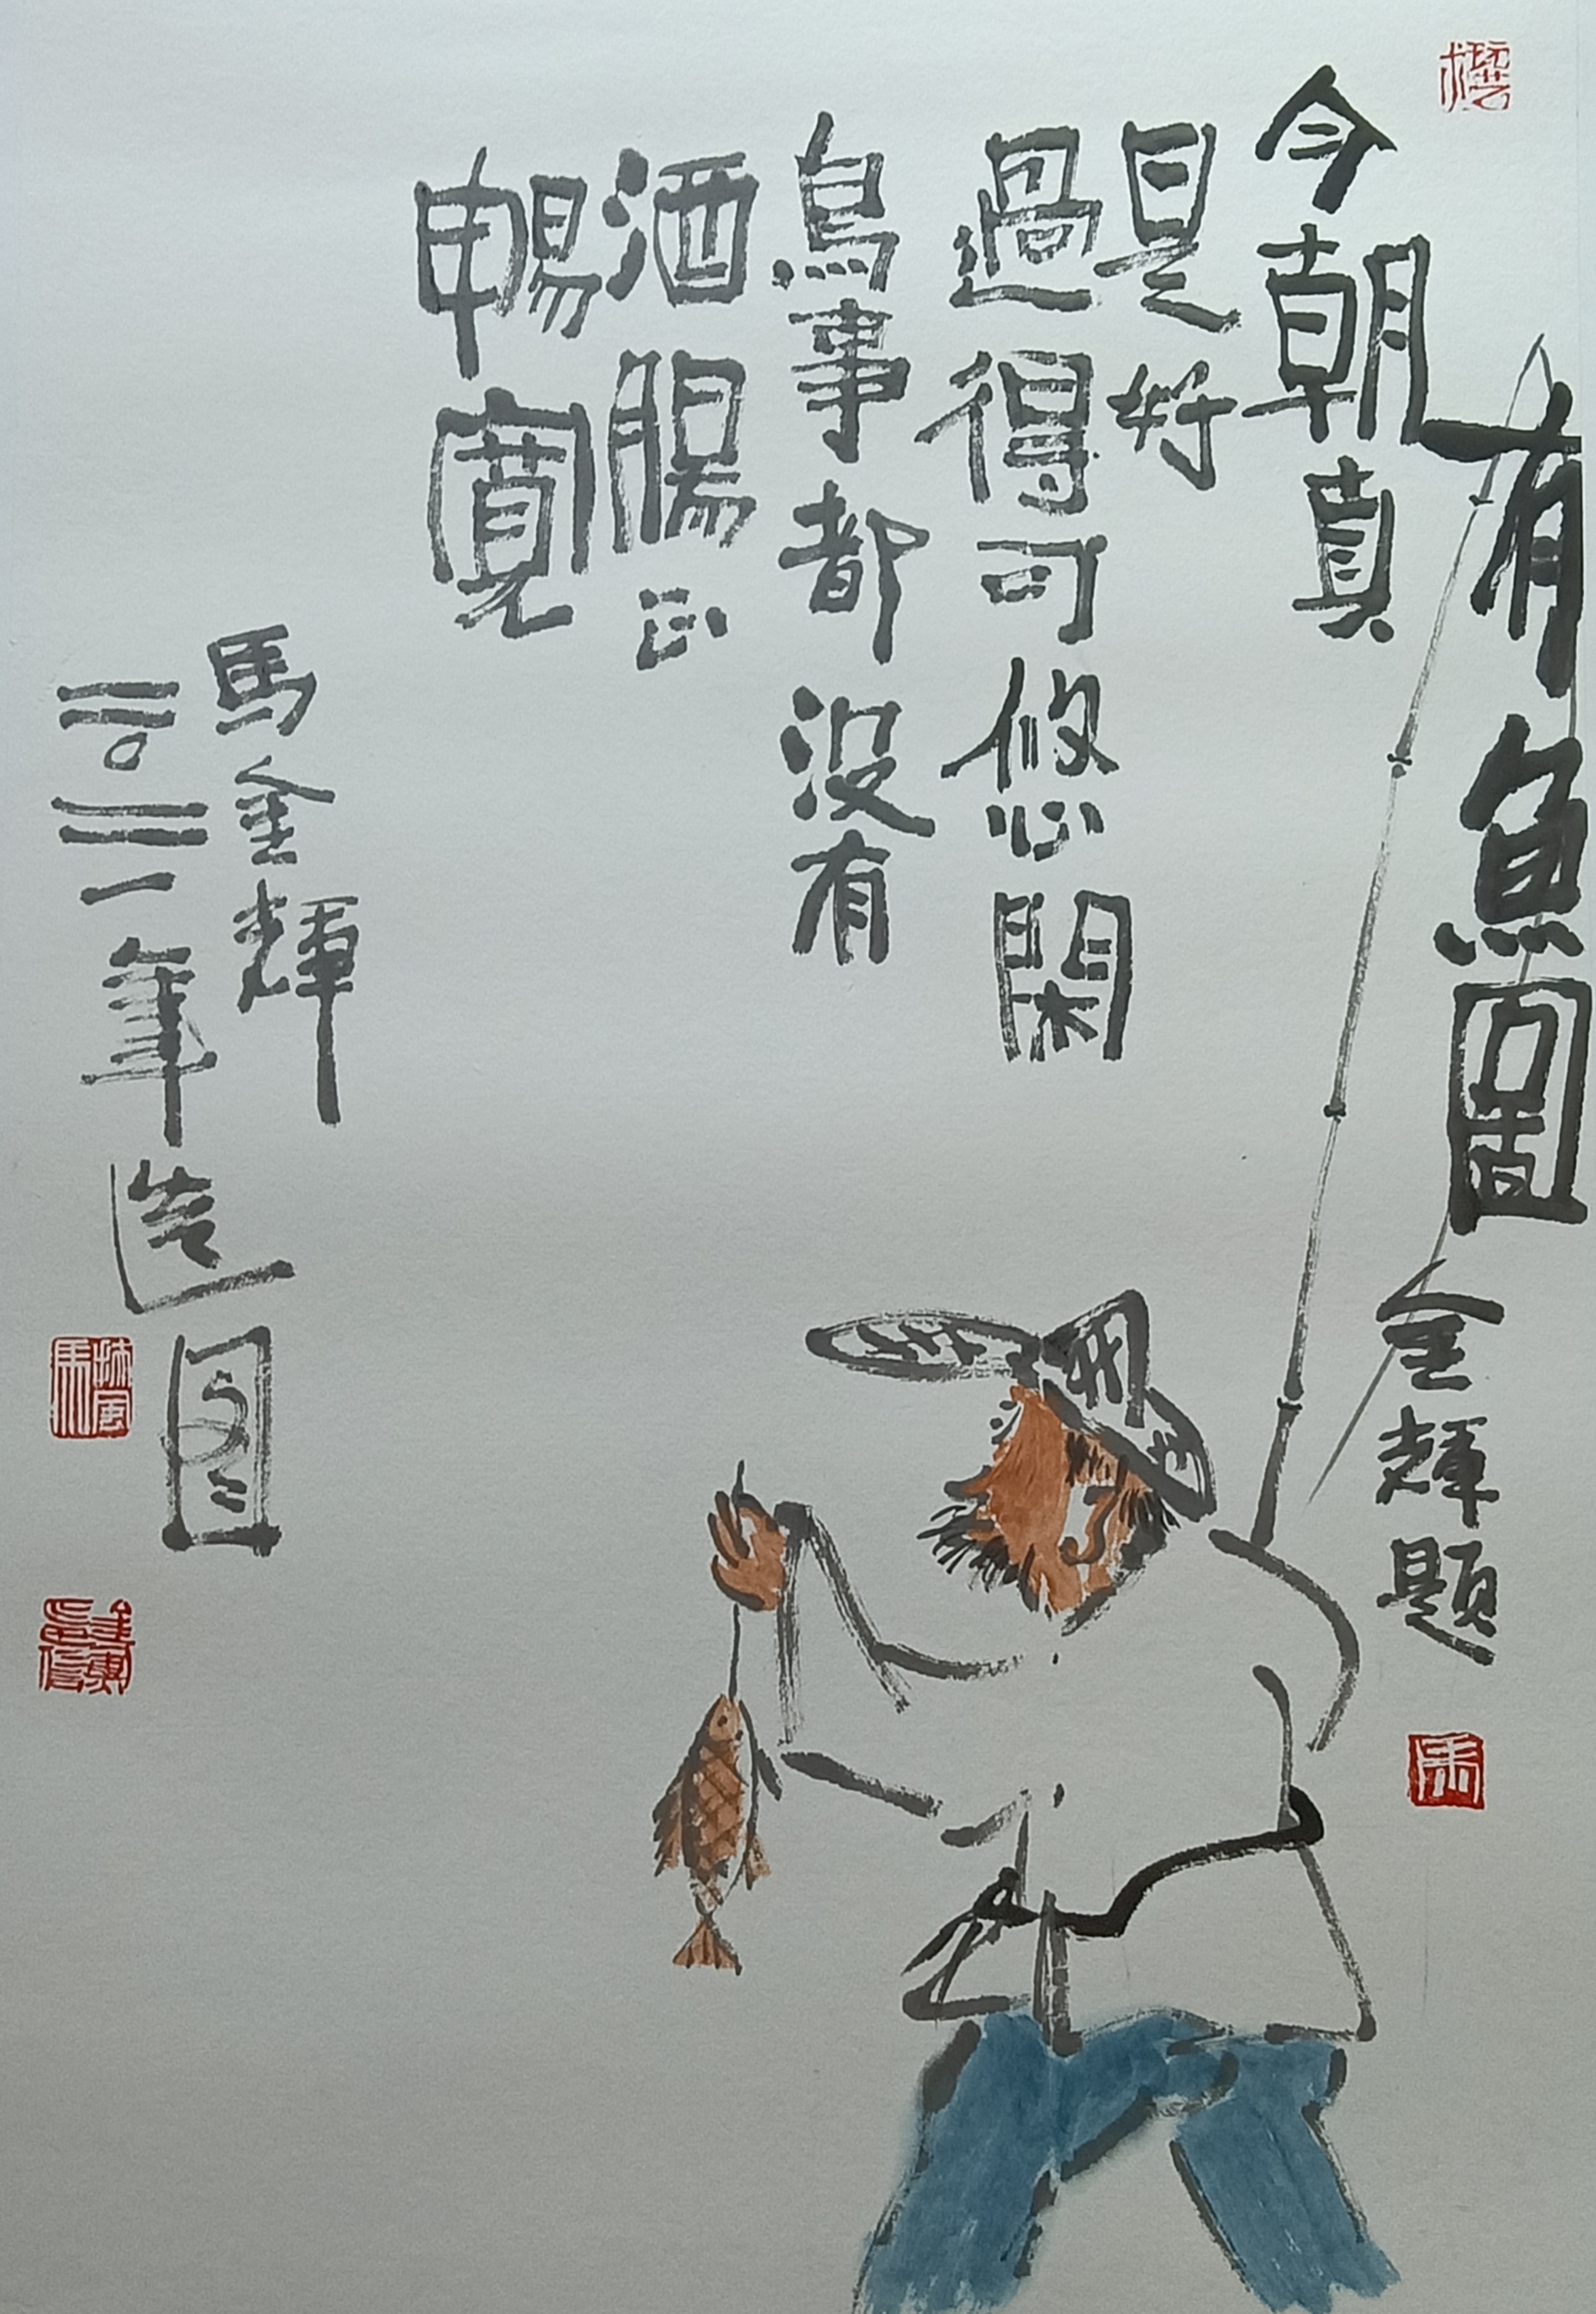 有魚圖 金輝題
今朝真
是好
過得可悠閑
鳥事都没有
酒腸正
暢寬
馬金輝
二〇二一年造图